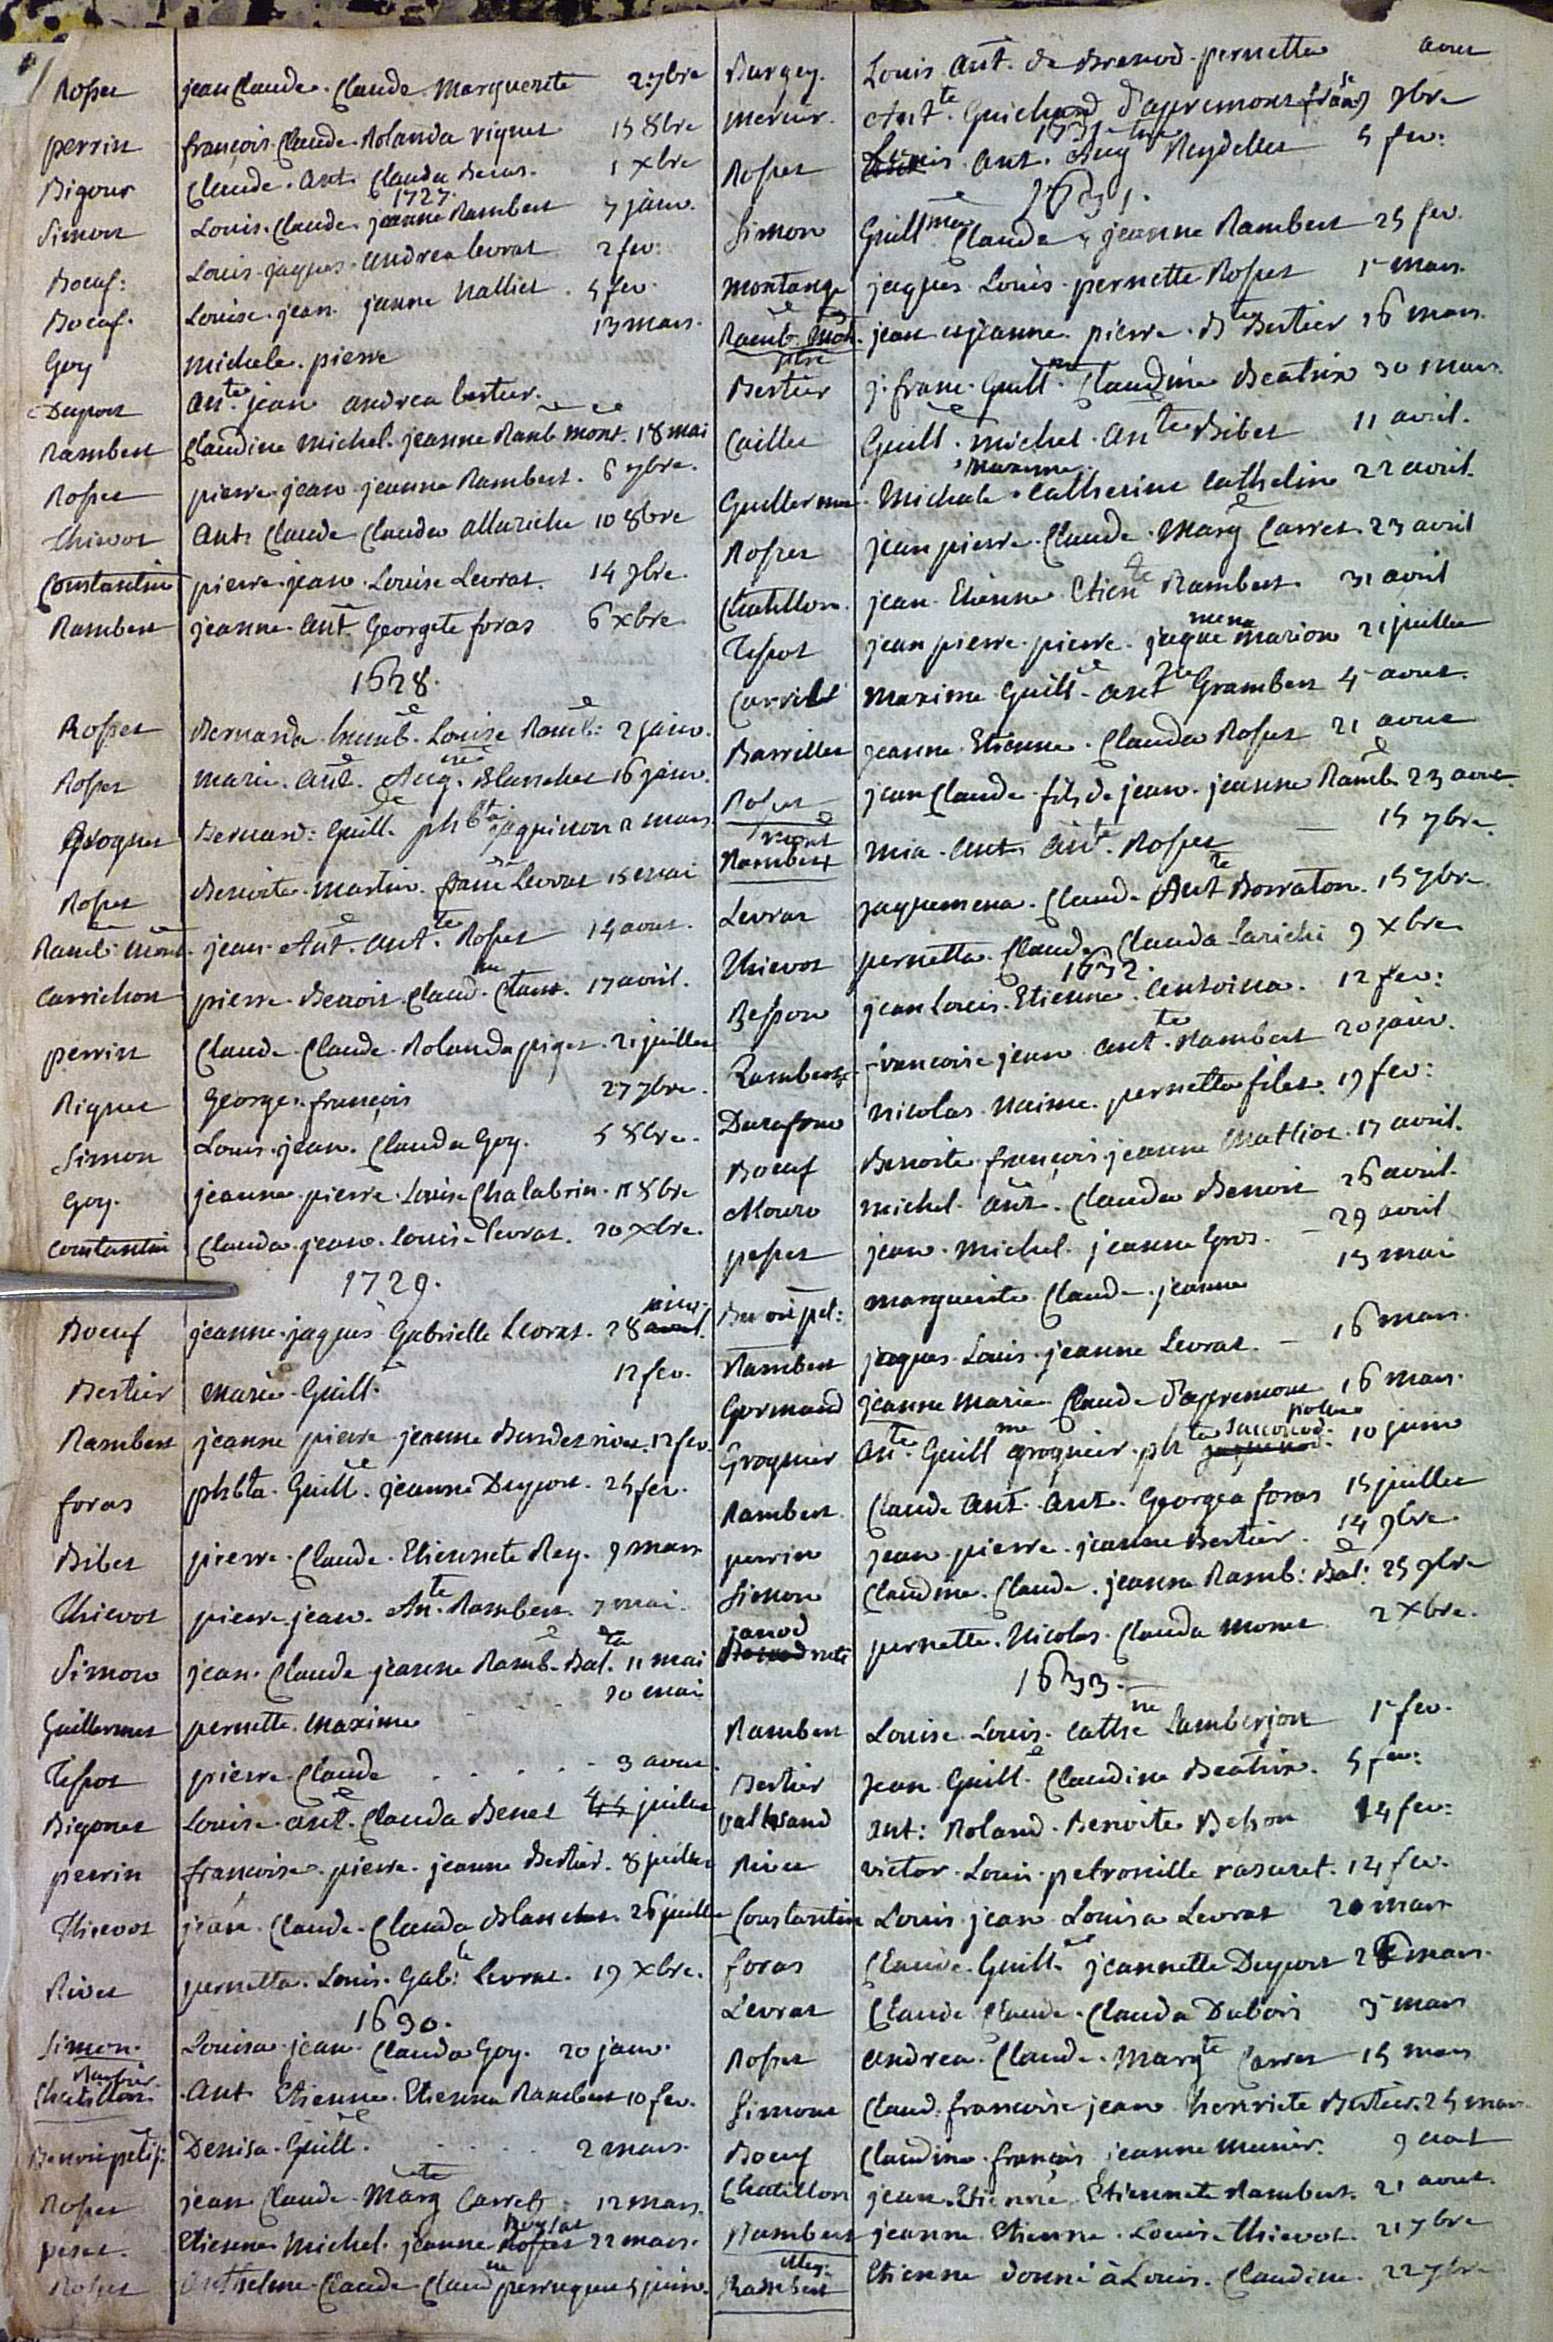 Rosset jean Claude. Claude Marguerite 2 7bre
perrin françois Claude. Rolanda riguet 15 8bre
Bigour Claude. Ant. Clauda 1 xbre
1727.
Simon Louis. Claude. jeanne Rambert 7 janv.
Boeuf: Louis jaques. andrea levrat 2 fev:
Boeuf. Louise. jean. janne Nalliet. 5 fev.
Goy Michele. pierre 13 mars.
Dupont Ante. jean andrea bertier.
Rambert Claudine Michel. jeanne Ramb. mont. 18 mai
Rosset pierre. jean jeanne Rambert. 6 7bre.
Thievot Ant. Claude Clauda allariche 10 8bre
Constantin pierre. jean. Louise Levrat. 14 9bre.
Rambert jeanne. Ant. Georgete foras 6 xbre
1628.
Rosset Bernarda. humb. Louise Ramb: 2 janv.
Rosset Marie. Ant. Aug. Blanchet 16 janv.
Groguet Bernard: Guill. phbta jaquinon 2 mars
Rosset Benoite. Martin. franc Levrat 15 mai
Ramb: Mont. jean. Ant. Ante. Rosset 14 aout.
Carrichon pierre. Benoit. Claud. 17 avril.
perrin Claude. Claude. Rolanda piget. 21 juillet
Riguet George. françois 27 7bre.
Simon Louis. jean. Clauda Goy. 5 8bre.
Goy. jeanne. pierre. Louise Chalabrin. 18 8bre
Constantin Clauda. jean. louise levrat. 20 xbre.
1729.
Boeuf jeanne. jaques Gabrielle Levrat. 28 avril. janv.
Bertier Marie. Guill. 12 fev.
Rambert jeanne pierre jeanne 12 fev.
foras phbta. Guill. jeanne Dupont. 25 fev.
Bibet pierre. Claude. Etiennete Rey. 9 mars
Thievot pierre. jean. Ante. Rambert. 7 mai.
Simon jean. Claude. jeanne Ramb. Bal. 11 mai
Guillermet pernette. Maxime 20 mai
Tissot pierre Claude . . . . 3 aout.
Bigonet Louise. ant. Clauda Benet juillet
perrin francoise. pierre. jeanne Bertier. 8 juillet
Thievot jean. Claude. Clauda Blanchet. 26 juillet
Rivet pernetta. Louis. Gab: Levrat. 19 xbre.
1630.
Simon. Louisa. jean. Clauda Goy. 20 janv.
Chatillon. Ant. Etienne. Etienna Rambert 10 fev.
Denisa. Guill. . . . . 2 mars.
Rosset jean Claude. Marg Carrett: 12 mars.
peset. Etienne Michel. jeanne Rosset 22 mars.
Rosset Anthelme. Claude Claudne perruquet 5 juin.
Burgey. Louis. Ant. de Brenod. pernette aout
Mercier. Ante. Guichard d'apremont 9bre
Rosset Louis. Ant. Aug Reydellet 5 fev:
1631.
Simon Guillme Claude. jeanne Rambert 25 fev.
Montange jaques. Louis. pernette Rosset 1 mars.
Ramb. Mont. jean jeanne. pierre. Bertier 16 mars.
Bertier j. franc. Guill. Claudine Beatrix 30 mars.
Caillet Guill. Michel. ante Bibet 11 avril.
Guillermet. Michale. Maxime. Catherine Catheline 22 avril.
Rosset jean pierre. Claude. Marg Carret. 23 avril
Chatillon. jean Etienne. Etien Rambert. 31 avril
Tissot jean pierre. pierre. jaquemena Marion 21 juillet
Carrilt Maxime Guill. ant Grambert 4 aout.
Barrillet jeanne Etienne. Clauda Rosset 21 aout
Rosset jean Claude. fils de jean. jeanne Ramb. 23 aout.
Rambert mia. Ant. Ante. Rosset — 15 7bre.
Levrat jaquemena. Claude. Ant Borraton. 15 7bre.
Thievot pernetta. Claude Clauda larichi 9 xbre
1632.
Besson jean Louis. Etienne. Antoina. 12 fev:
Rambert francoise jean ante. Rambert 20 janv.
Durafour Nicolas. naime. pernette filet. 19 fev:
Boeuf Benoite françois. jeanne Matliot. 17 avril.
Mouro Michel. Ant. Clauda Benoit 26 avril.
pesset jean. Michel. jeanne Gros. — 29 avril
marguerite. Claude. jeanne 13 mai
Rambert jaques. Louis. jeanne Levrat. — 16 mars.
Germand jeanne Marie. Claude d'apremont 16 mars.
Groguier Ante. Guill groguier. ph 10 juin
Rambert Claude Ant. Ant. Georgea foras 15 juillet
perrin jean. pierre. jeanne Bertier. 14 9bre
Simon Claudine. Claude. jeanne Ramb: Bal: 25 9bre
janod pernette. Nicolas. Clauda monet 2 xbre.
1633.
Rambert Louise. Louis. Cathne Lamberjon 1 fev.
Bertier Jean. Guill. Claudine Beatrix. 5 fev:
Ant: Roland. Benoite Besson 14 fev:
Rivet victor. Louis. petronille rasuret. 14 fev.
Constantin Louis jean. Louisa Levrat 20 mars
foras Claude. Guill. jeannette Dupont 2 mars.
Levrat Claude Claude. Clauda Dubois 3 mars
Rosset Andrea. Claude. Margte Carret 15 mars
Simon Claud. francoise jean henriete Bertier. 25 mars.
Boeuf Claudine. françois jeanne Munier. 9 aout
Chatillon jean. Etienne. Etiennete Rambert. 21 aout.
Rambert jeanne. Etienne. Louise Thievot. 21 7bre
Rambert Etienne donné à Louis. Claudine. 22 7bre